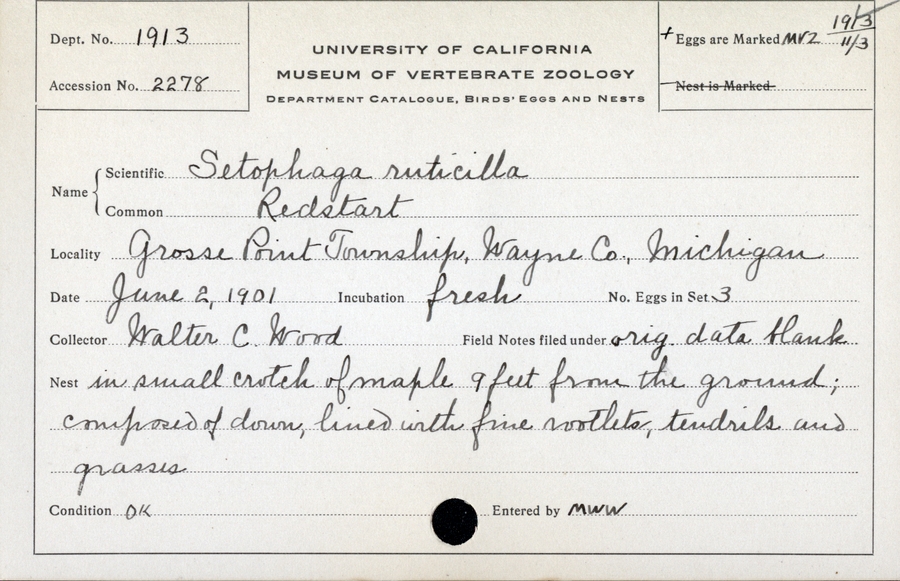 Dept. No. 1913
Accession No. 2278
UNIVERSITY OF CALIFORNIA
MUSEUM OF VERTEBRATE ZOOLOGY
DEPARTMENT CATALOGUE, BIRDS' EGGS AND NESTS
+ Eggs are Marked MVZ 1913 11/3
Nest is Marked
Name Scientific Setophaga ruticilla
Common Redstart
Locality Grosse Point Township, Wayne Co., Michigan
Date June 2, 1901 Incubation fresh No. Eggs in Set 3
Collector Walter C. Wood Field Notes filed under orig. data blank
Nest in small crotch of maple 9 feet from the ground;
composed of down, lined with fine rootlets, tendrils and
grasses
Condition OK Entered by MWW